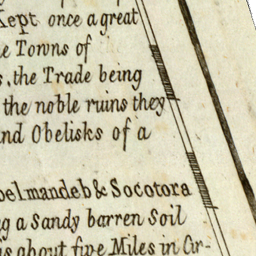 Kept once a great
Towns of
the Trade being
the noble ruins they
and Obelisks of a
belmandeb & Socotora
a Sandy barren Soil
is about five Miles in Cir-